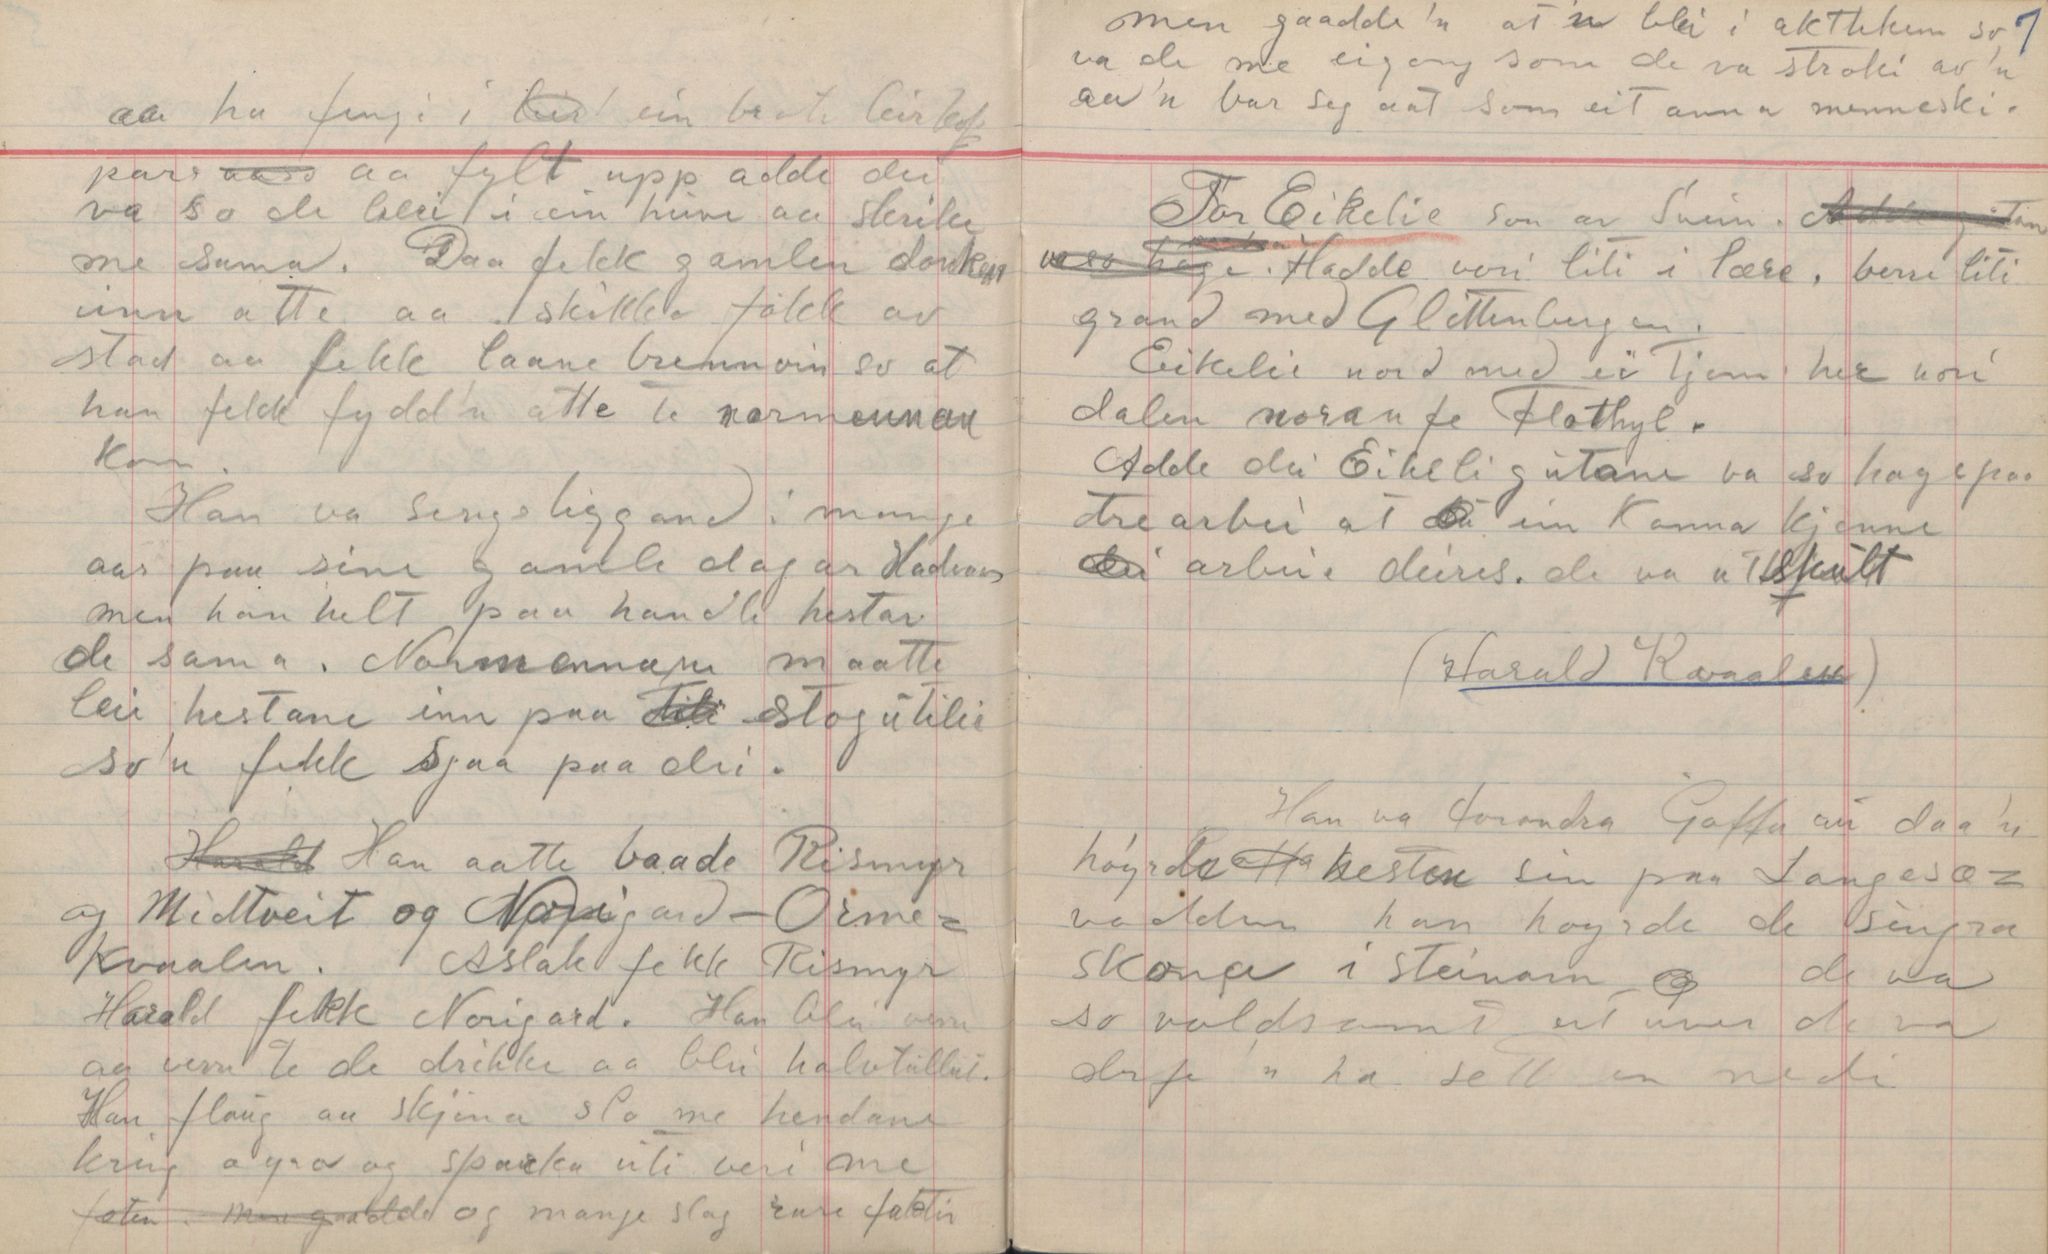 aa ha fengi i leir ein
pars aars aa fylt upp adde dei
va so de blei i ein heive aa skrike
me sama. Daa fekk gamlen dorken
inn atte aa skikka folk av
stad aa fekk laane brennvin so at
han fekk fydd'n atte te normennan
kom.
Han va sengeliggand i mange
aar paa sine gamle dagar Hadvar
men han helt paa handle hestar
de sama. Normennane maatte
lei hestane inn paa stogutilie
so'n fekk sjaa paa dei.
Harald Han aatte baade Rismyr
og Midtveit og Norigard - Orme=
Kvaalen. Aslak fekk Rismyr
Harald fekk Norigard. Han blei
aa vera te de drikke aa blei halvtullut.
Han flaug au skjena slo me hendane
kring øyro og sparka uti veri me
foten. men gaadde og mange slag rare fakter
7
men gaadde'n at'n blei i akttekun so
va de me eigong som de va stroki av'n
aa'n bar seg aat som eit anna menneski.
Tor Eikelie son av Svein.
va so høge. Hadde vori liti i lære, berre liti
grand med Glittenbergen.
Eikelie nord med ei Tjønn her nori
dalen noran fe Flothyl.
Adde dei Eikeligutane va so hage paa
trearbei at ein kanna kjenne
dei arbeie deires. de va utskult
(Harald Kvaalen)
Han va forandra Goffa au daa'n
høyrde hesten sin paa Langesæ=
vadden han høyrde de singra
skone i steinam de va
so valdsamt eit uver de va
'n ha sett en nedi